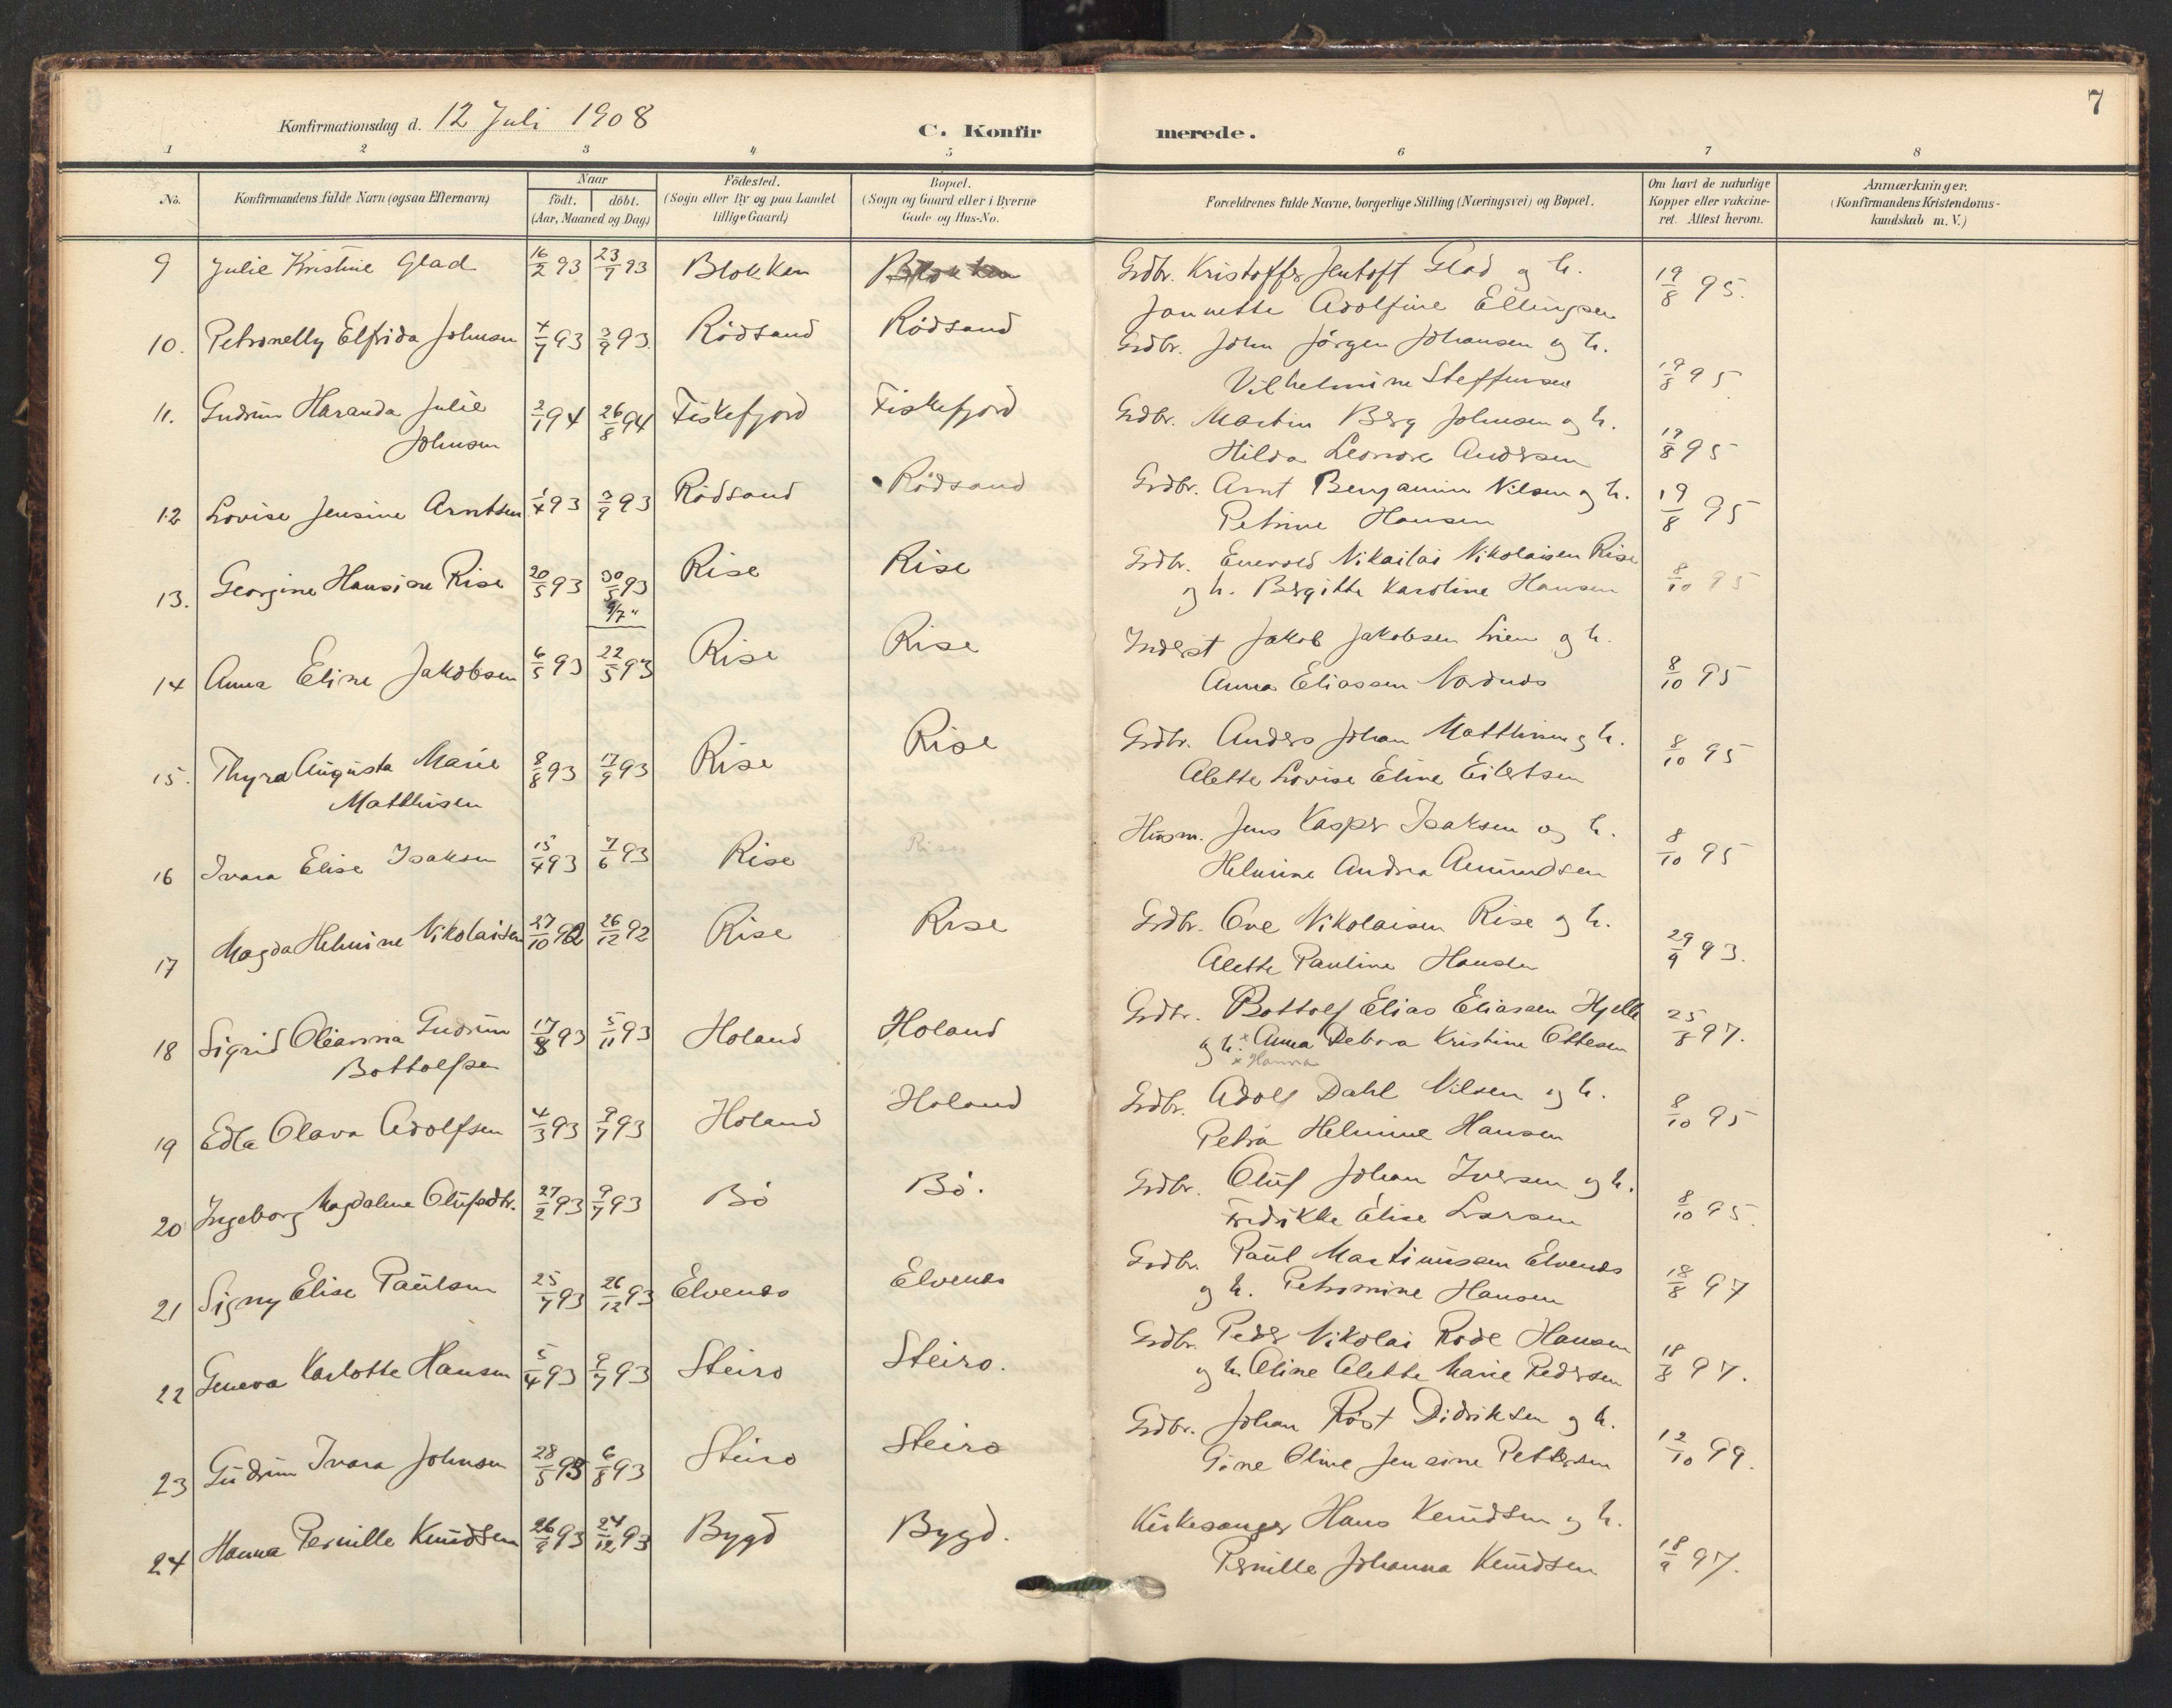 7
Konfirmationsdag d. 12 Juli 1908
C. Konfir merede.
1 2 3 4 5 6 7 8
No. Konfirmandens fulde Navn (ogsaa Efternavn) Naar födt. döbt. (Aar, Maaned og Dag) Födested. (Sogn eller By og paa Landet tillige Gaard) Bopæl. (Sogn og Gaard eller i Byerne Gade og Hus-No. Forældrenes fulde Navne, borgerlige Stilling (Næringsvei) og Bopæl. Om havt de naturlige Kopper eller vakcineret. Attest herom. Anmærkninger. (Konfirmandens Kristendomskundskab m. V.)
9 Julie Kristine Glad 16/2 93 23/7 93 Blokken Blokken Grdbr. Kristoffer Jentoft Glad og h. 19/8 95.
Jannette Adolfine Ellingsen
10. Petronelly Elfrida Johnsen 4/7 93 3/9 93. Rödsand Rödsand Grdbr. John Jörgen Johansen og h.
Vilhelmine Steffensen 19/8 95
11. Gudrun Haranda Julie 2/1 94 26/8 94 Fiskefjord Fiskefjord Grdbr. Martin Berg Johnsen og h.
Johnsen Hilda Leonore Andersen 19/8 95
12 Lovise Jensine Arntsen 1/4 93 3/9 93 Rödsand Rödsand Grdbr. Arnt Benjamin Nilsen og h. 19/8 95
Petrine Hansen
13. Georgine Hansine Rise 20/5 93 30/5 93 Rise Rise Grdbr. Enevold Nikailai Nikolaisen Rise
9/7 " og h. Bergitte Karoline Hansen 8/10 95
14 Anna Eline Jakobsen 6/5 93 22/5 93 Rise Rise Inderst Jakob Jakobsen Lien og h.
Anna Eliassen Nordnes 8/10 95
15. Thyra Augusta Marie 8/8 93 17/9 93 Rise Rise Grdbr. Anders Johan Matthisen og h. 8/10 95
Matthisen Alette Lovise Eline Eilertsen
16 Ivara Elise Isaksen 15/4 93 7/6 93 Rise Rise Husm. Jens Kasper Isaksen og h. 8/10 95
Helmine Andrea Amundsen
17 Magda Helmine Nikolaisen 27/10 92 26/12 92 Rise Rise Grdbr. Ove Nikolaisen Rise og h.
Alette Pauline Hansen 29/9 93.
18 Sigrid Oleanna Gudrun 17/8 93 5/11 93 Holand Holand Grdbr. Bottolf Elias Eliassen Hjelle 25/8 97.
Bottolfsen og h. x Anna Debora Kristine Ottesen
x Hanna
19 Edla Olava Adolfsen 4/3 93 9/7 93 Holand Holand Grdbr. Adolf Dahl Nilsen og h. 8/10 95
Petra Helmine Hansen
20 Ingeborg Magdalene Olufsdtr. 27/2 93 9/7 93 Bö Bö. Grdbr. Oluf Johan Iversen og h.
Fredrikke Elise Larsen 8/10 95.
21 Signy Elise Paulsen 25/7 93 26/12 93 Elvenes Elvenes Grdbr. Paul Martinussen Elvenes
og h. Petromine Hansen 18/8 97
22 Geneva Karlotte Hansen 5/4 93 9/7 93 Steiro Steiro. Grdbr. Peder Nikolai Rode Hansen
og h. Oline Alette Marie Pedersen 18/8 97.
23 Gudrun Ivara Johnsen 28/5 93 6/8 93 Steiro Steiro Grdbr. Johan Röst Didriksen og h.
Gine Oline Jensine Pettersen 12/10 99.
24 Hanna Pernille Knudsen 26/9 93 24/12 93 Bygd Bygd. Kirkesanger Hans Knudsen og h.
Pernille Johanna Knudsen 18/9 97.